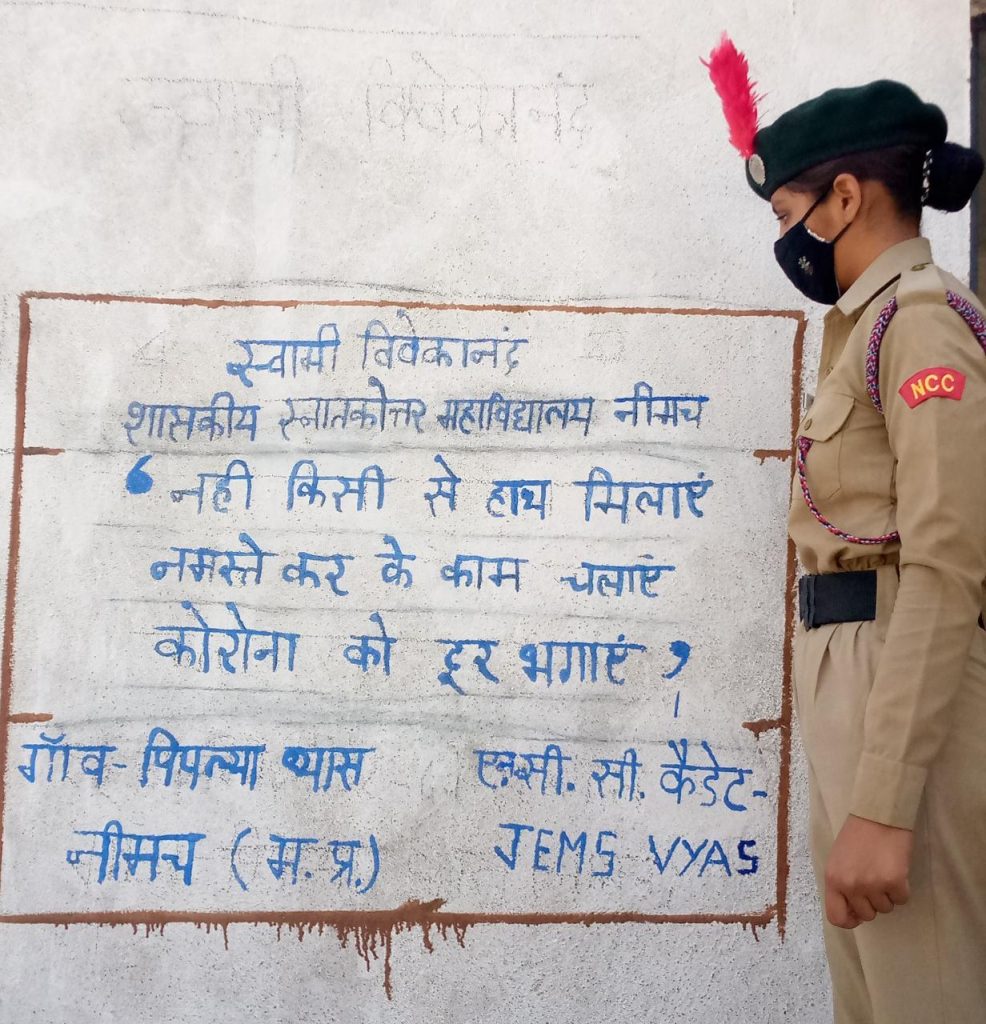 स्वामी विवेकानंद
स्वामी विवेकानंद
शासकीय स्नातकोत्तर महाविद्यालय नीमच
‘ नही किसी से हाथ मिलाएं
नमस्ते कर के काम चलाएं
कोरोना को दूर भगाएं ’
।
गॉव - पिपल्या व्यास
नीमच (म. प्र.)
एन.सी. सी. कैडेट-
JEMS VYAS
NCC